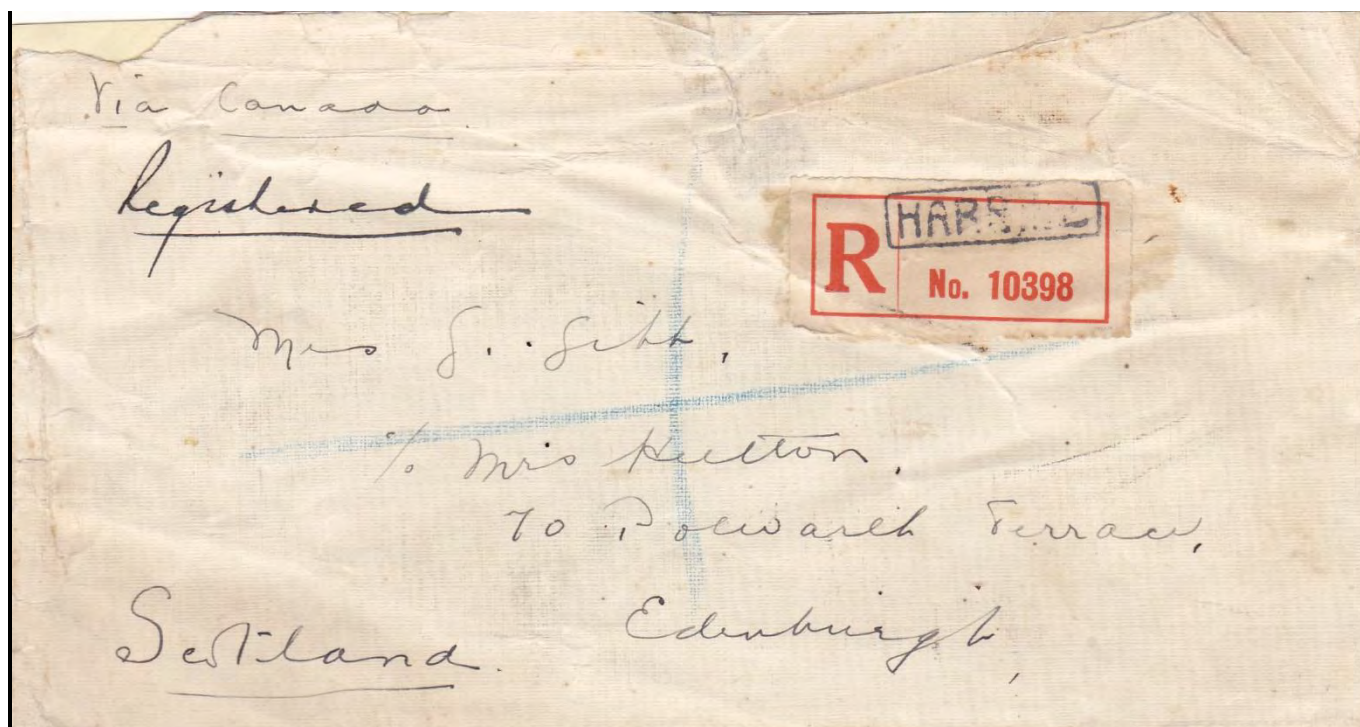 Via Canada
Registered
R
No. 10398
Mrs G. Gibb,
c/o Mrs Hutton,
70 Polwarth Terrace,
Edinburgh,
Scotland.